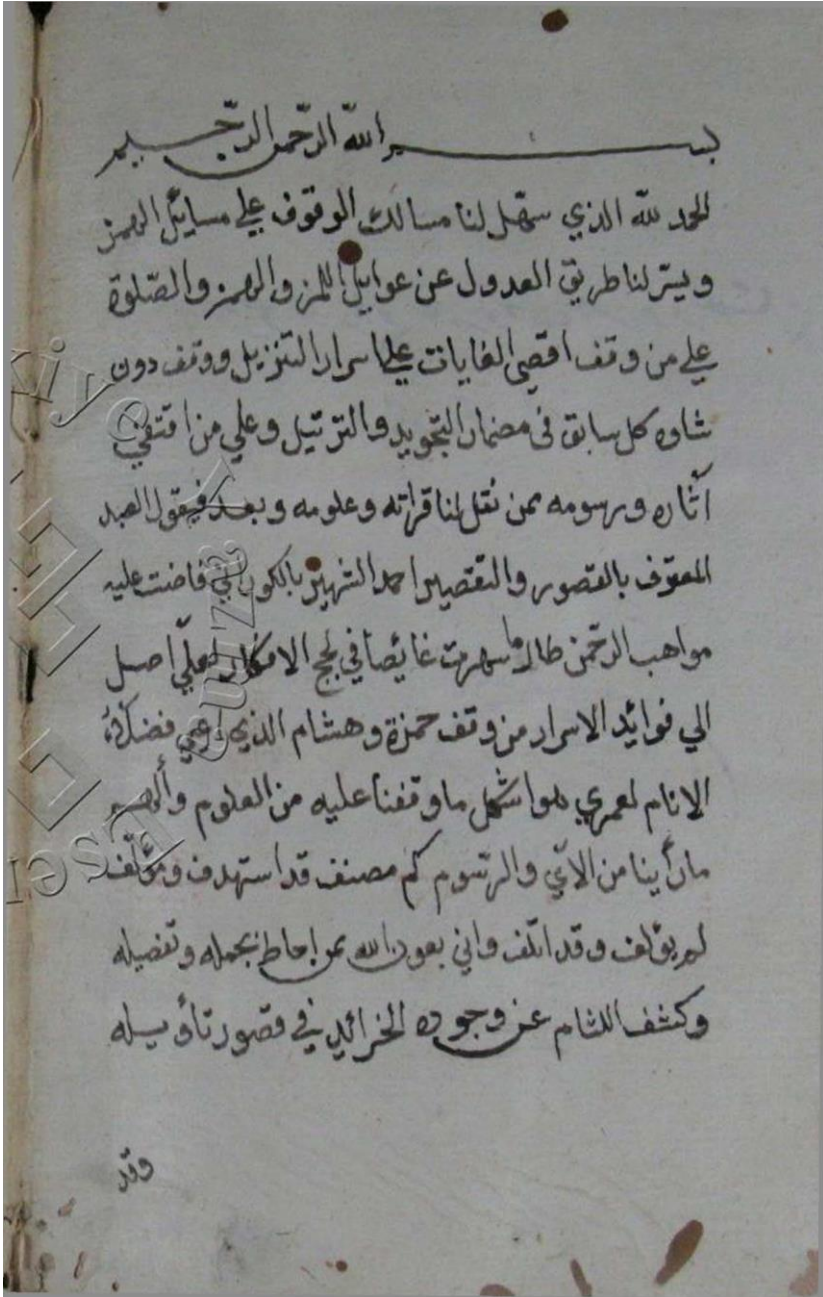 بسم الله الرحمن الرحيم
الحمد لله الذي سهّل لنا مسالك الوقوف علي مسايل الهمز
ويسّر لنا طريق العدول عن عوايل اللمز والهمز والصّلوة
علي من وقف اقصي الغايات علي اسرار التنزيل ووقف دون
شاوه كل سابق في مضمار التجويد والترتيل وعلي من اقتفي
آثاره ورسومه ممن نقل لنا قراته وعلومه وبعد فيقول العبد
المعترف بالقصور والتقصير احمد الشهير بالكوراني فاضت عليه
مواهب الرحمن طال ما سهرت غايصا في لجج الافكار لعلّي اصل
الي فوائد الاسرار من وقف حمزة وهشام الذي
الانام لعمري هو اشكل ما وقفنا عليه من العلوم
ما رأينا من الآي والرسوم كم مصنف قد استهدف ومؤلف
لم يؤلف وقد اتلف واني بعون الله ممن احاط بجمله وتفصيله
وكشف اللثام عن وجوه الخرائد في قصور تأويله
وقد